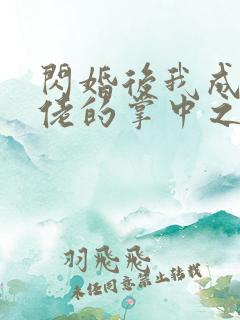 閃婚後我成
佬的掌中之
羽飛飛
未任同意禁止转載